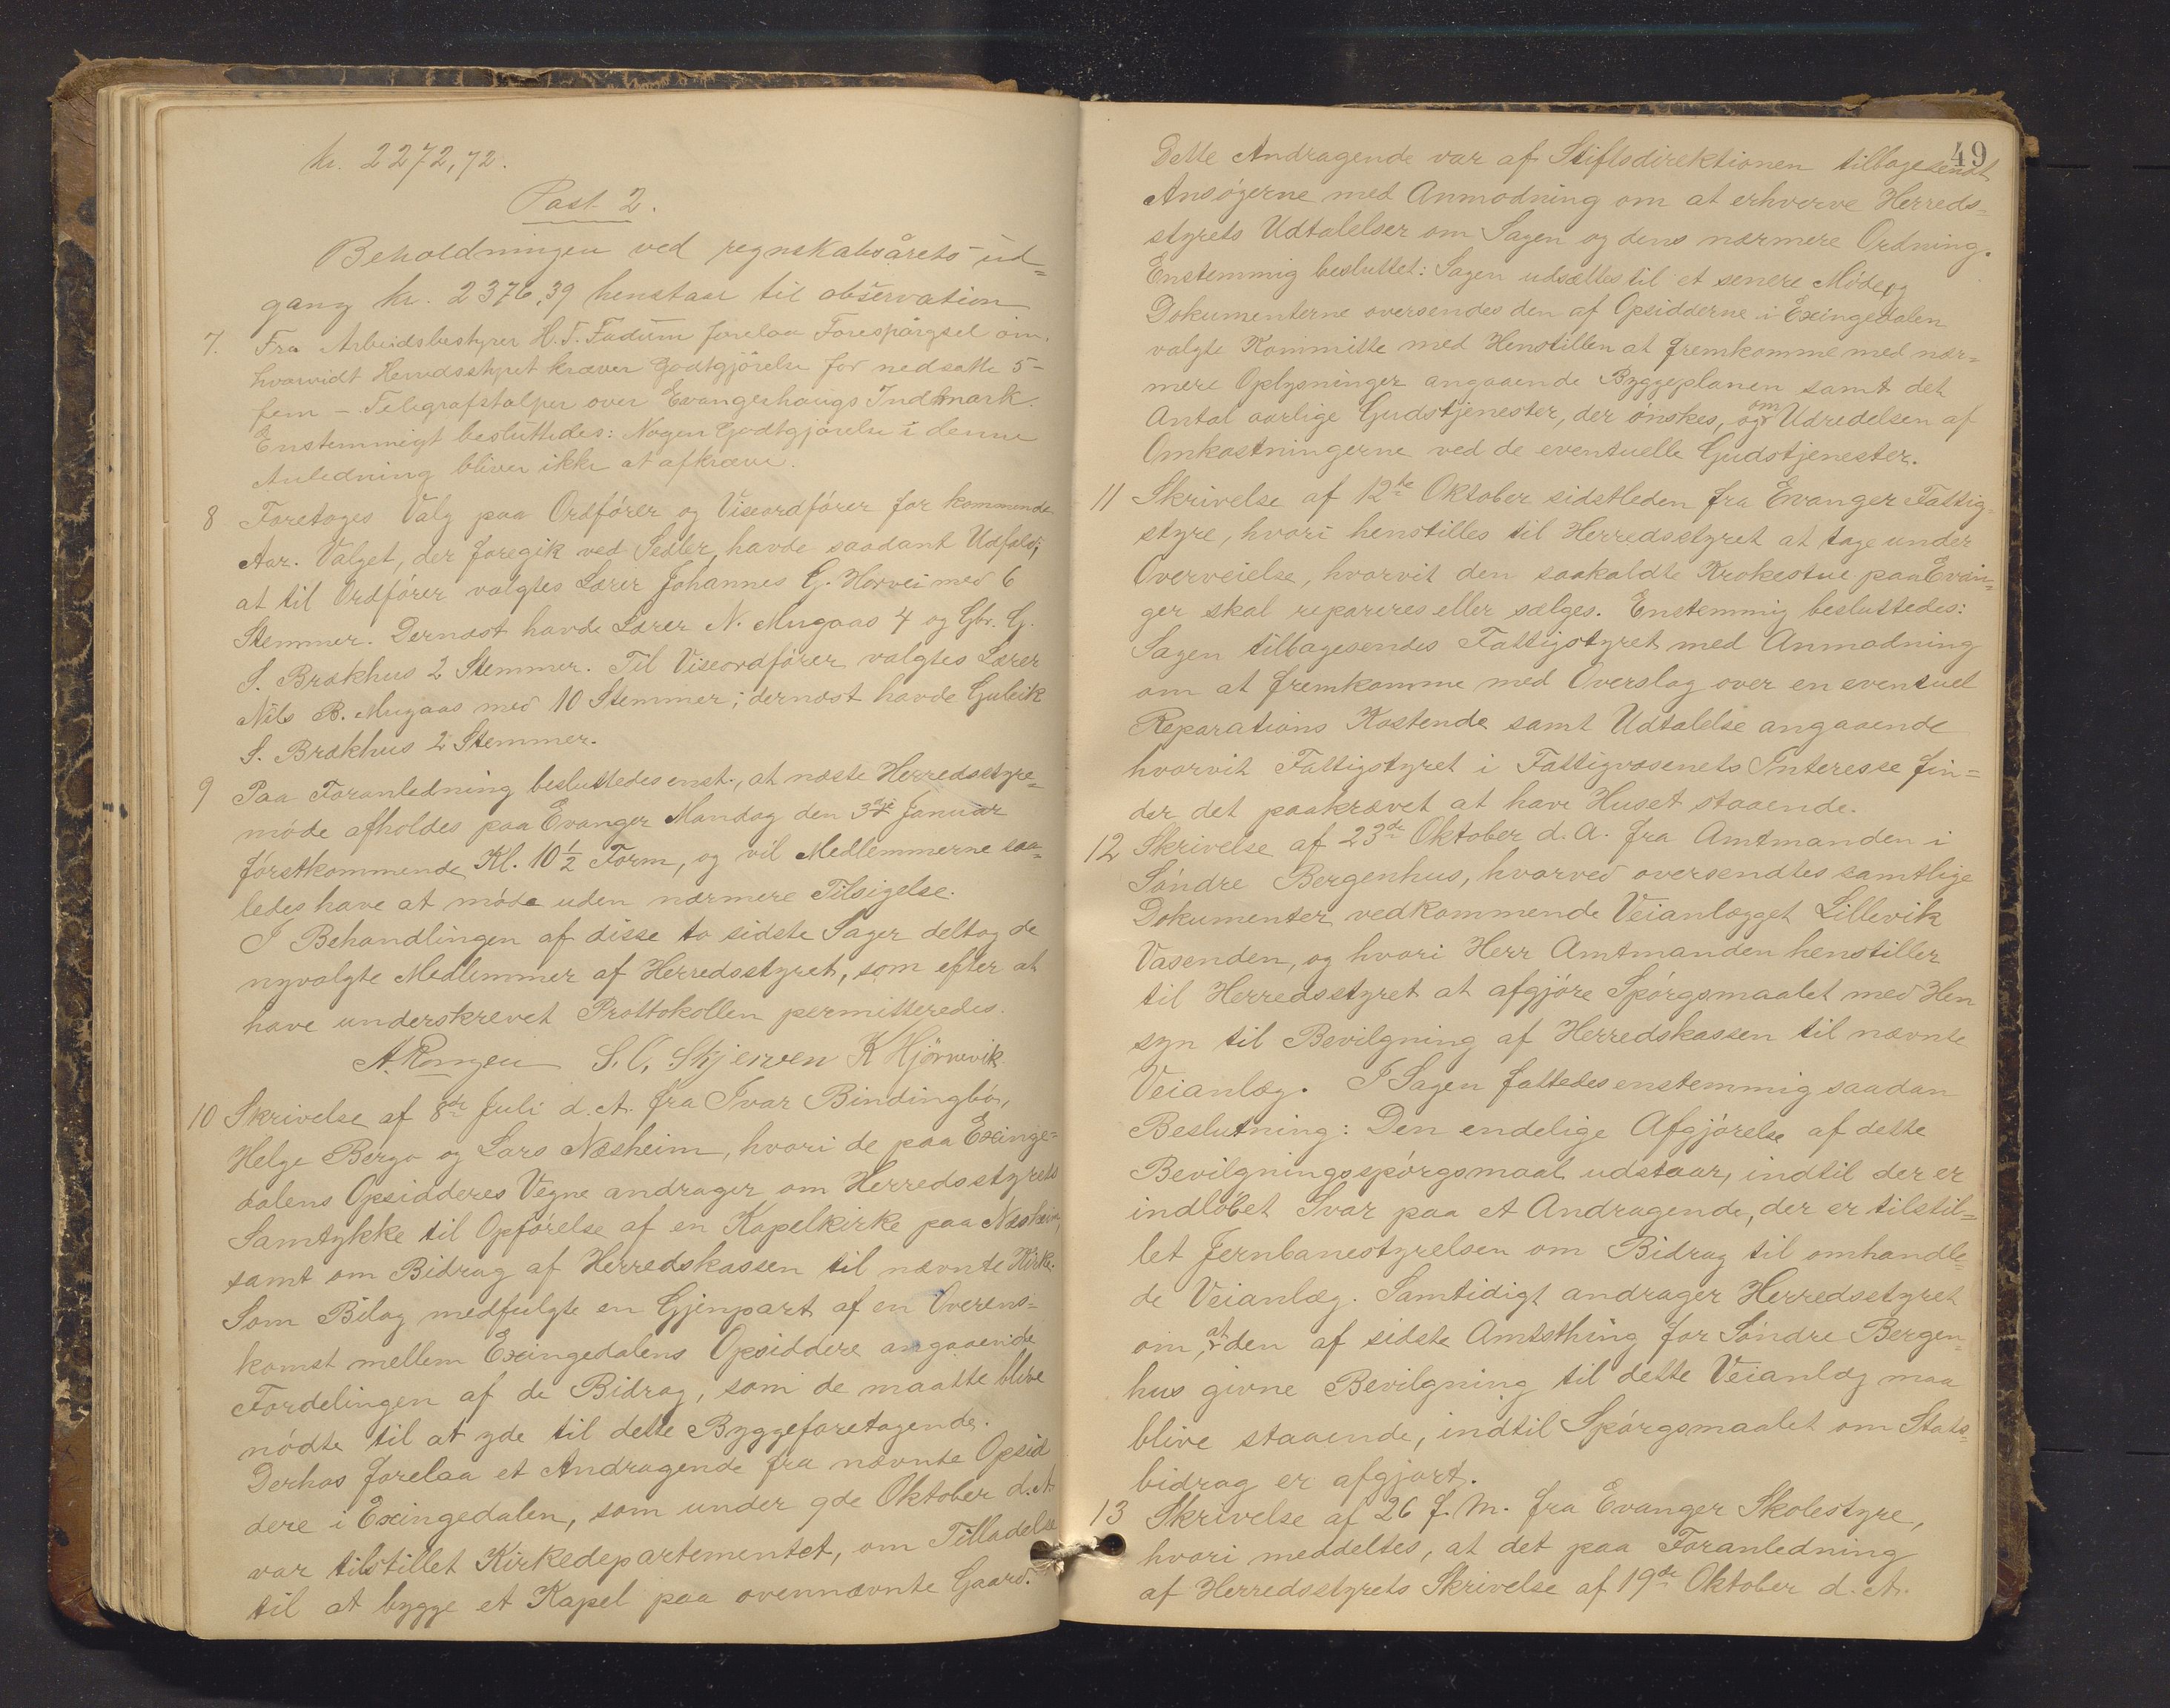 kr. 2272,72.
Post 2.
Beholdningen ved regnskabsårets ud=
gang kr. 2376,39 henstaar til observation
7. Fra Arbeidsbestyrer H. T. Fadum forelaa Forespørgsel om,
hvorvidt Herredsstyret kræver Godtgjörelse for nedsatte 5 –
fem – Telegrafstolper over Evangerhaugs Indmark.
Enstemmigt besluttedes: Nogen Godtgjørelse i denne
Anledning bliver ikke at afkræve.
8 Foretoges Valg paa Ordfører og Viseordfører for kommende
Aar. Valget, der foregik ved Sedler, havde saadant Udfald;
at til Ordfører valgtes Lærer Johannes G. Horvei med 6
Stemmer. Dernæst havde Lærer N. Mugaas 4 og Gbr. G.
S. Brækhus 2 Stemmer. Til Viseordfører valgtes Lærer
Nils B. Mugaas med 10 Stemmer; dernæst havde Guleik
S. Brækhus 2 Stemmer.
9 Paa Foranledning besluttedes enst., at næste Herredsstyre=
møde afholdes paa Evanger Mandag den 3die Januar
førstkommende Kl. 10 ½ Form, og vil Medlemmerne saa=
ledes have at møde uden nærmere Tilsigelse.
I Behandlingen af disse to sidste Sager deltog de
nyvalgte Medlemmer af Herredsstyret, som efter at
have underskrevet Prottokollen permitteredes.
A. Rongen S. O. Skjerven K Hjørnevik
10 Skrivelse af 8de Juli d. A. fra Ivar Bindingbø,
Helge Bergo og Lars Næsheim, hvori de paa Exinge=
dalens Opsidderes Vegne andrager om Herredsstyrets
Samtykke til Opførelse af en Kapelkirke paa Næsheim,
samt om Bidrag af Herredskassen til nævnte Kirke.
Som Bilag medfulgte en Gjenpart af en Overens=
komst mellem Exingedalens Opsiddere angaaende
Fordelingen af de Bidrag, som de maatte blive
nødte til at yde til dette Byggeforetagende.
Derhos forelaa et Andragende fra nævnte Opsid
dere i Exingedalen, som under 9de Oktober d. A.
var tilstillet Kirkedepartementet, om Tilladelse
til at bygge et Kapel paa ovennævnte Gaard.
49
Dette Andragende var af Stiftsdirektionen tilbagesendt
Ansøgerne med Anmodning om at erhverve Herreds=
styrets Udtalelser om Sagen og dens nærmere Ordning.
Enstemmig besluttet: Sagen udsættes til et senere Møde, og
Dokumenterne oversendes den af Opsidderne i Exingedalen
valgte Kommitte med Henstillen at fremkomme med nær=
mere Oplysninger angaaende Byggeplanen samt det
Antal aarlige Gudstjenester, der ønskes, og om Udredelsen af
Omkostningerne ved de eventuelle Gudstjenester.
11 Skrivelse af 12te Oktober sidstleden fra Evanger Fattig=
styre, hvori henstilles til Herredsstyret at tage under
Overveielse, hvorvit den saakaldte Krokestue paa Evan=
ger skal repareres eller sælges. Enstemmig besluttedes:
Sagen tilbagesendes Fattigstyret med Anmodning
om at fremkomme med Overslag over en eventuel
Reparations Kostende samt Udtalelse angaaende
hvorvit Fattigstyret i Fattigvæsenets Interesse fin=
der det paakrævet at have Huset staaende.
12 Skrivelse af 23de Oktober d. A. fra Amtmanden i
Søndre Bergenhus, hvorved oversendtes samtlige
Dokumenter vedkommende Veianlægget Lillevik
Vasenden, og hvori Herr Amtmanden henstiller
til Herredsstyret at afgjøre Spørgsmaalet med Hen
syn til Bevilgning af Herredskassen til nævnte
Veianlæg. I Sagen fattedes enstemmig saadan
Beslutning: Den endelige Afgjørelse af dette
Bevilgningsspørgsmaal udstaar, indtil der er
indløbet Svar paa et Andragende, der er tilstil=
let Jernbanestyrelsen om Bidrag til omhandle=
de Veianlæg. Samtidigt andrager Herredsstyret
om, at den af sidste Amtsthing for Søndre Bergen=
hus givne Bevilgning til dette Veianlæg maa
blive staaende, indtil Spørgsmaalet om Stats=
bidrag er afgjort.
13 Skrivelse af 26 f. M. fra Evanger Skolestyre,
hvori meddeltes, at det paa Foranledning
af Herredsstyrets Skrivelse af 19de Oktober d. A.